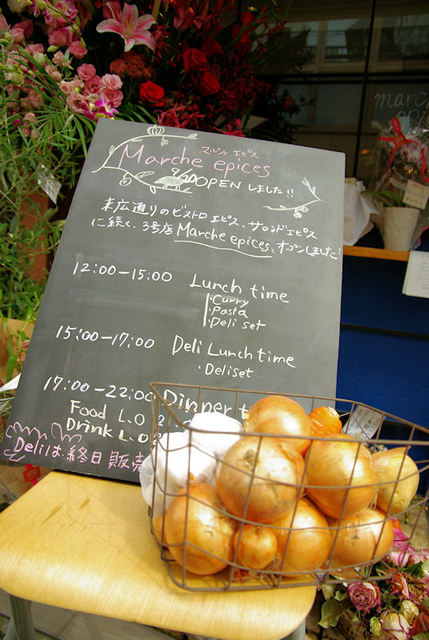 マルシェ エピス
Marche epices
9/20 OPEN しました!!
末広通りのビストロ エピス、サロンドエピス
に続く、3号店 Marche epices、オープンしました!
12:00-15:00 Lunch time
・Curry
・Pasta
・Deli set
15:00-17:00 Deli Lunch time
・Deliset
17:00-22:00 Dinner
Food L.O 2
Drink L.O
Deliは、終日販売
marc